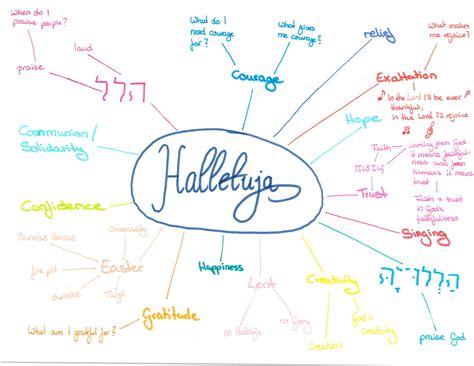 When do I
praise people?
laud
praise
הלל
What do I
need courage
for?
What gives
me courage?
Courage
relief
What makes
me rejoice?
Exaltation
In the Lord I'll be ever
thankful,
in the Lord I'll rejoice
Hope
Communion/
Solidarity
Halleluja
Faith
coming from God
it means faithful-
ness and from
humans it means
trust
Trust
Faith = trust
in God's
faithfulness
Confidence
Singing
community
Sunrise Service
fire pit
Easter
Sunrise
Taizé
Happiness
Lent
no Halleluja
no Glory
Creativity
God =
creativity
creation
הַלְלוּ־יָהּ
praise God
What am I grateful for?
Gratitude